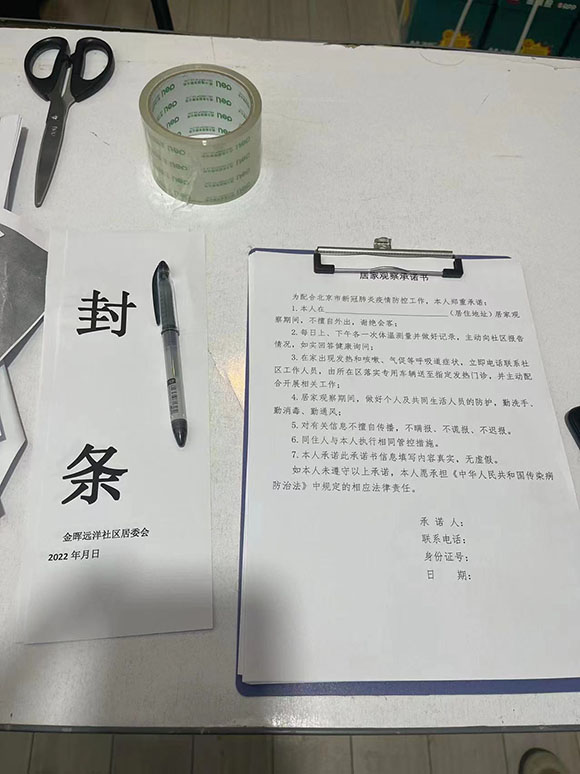 封
条
金晖远洋社区居委会
2022 年月日
居家观察承诺书
为配合北京市新冠肺炎疫情防控工作，本人郑重承诺：
1.本人在（居住地址）居家观
察期间，不擅自外出，谢绝会客；
2.每日上、下午各一次体温测量并做好记录，主动向社区报告
情况，如实回答健康询问；
3.在家出现发热和咳嗽、气促等呼吸道症状，立即电话联系社
区工作人员，由所在区落实专用车辆送至指定发热门诊，并主动配
合开展相关工作；
4.居家观察期间，做好个人及共同生活人员的防护，勤洗手、
勤消毒、勤通风；
5.对有关信息不擅自传播，不瞒报、不谎报、不迟报。
6.同住人与本人执行相同管控措施。
7.本人承诺此承诺书信息填写内容真实，无虚假。
如本人未遵守以上承诺，本人愿承担《中华人民共和国传染病
防治法》中规定的相应法律责任。
承 诺 人：
联系电话：
身份证号：
日 期：
deli